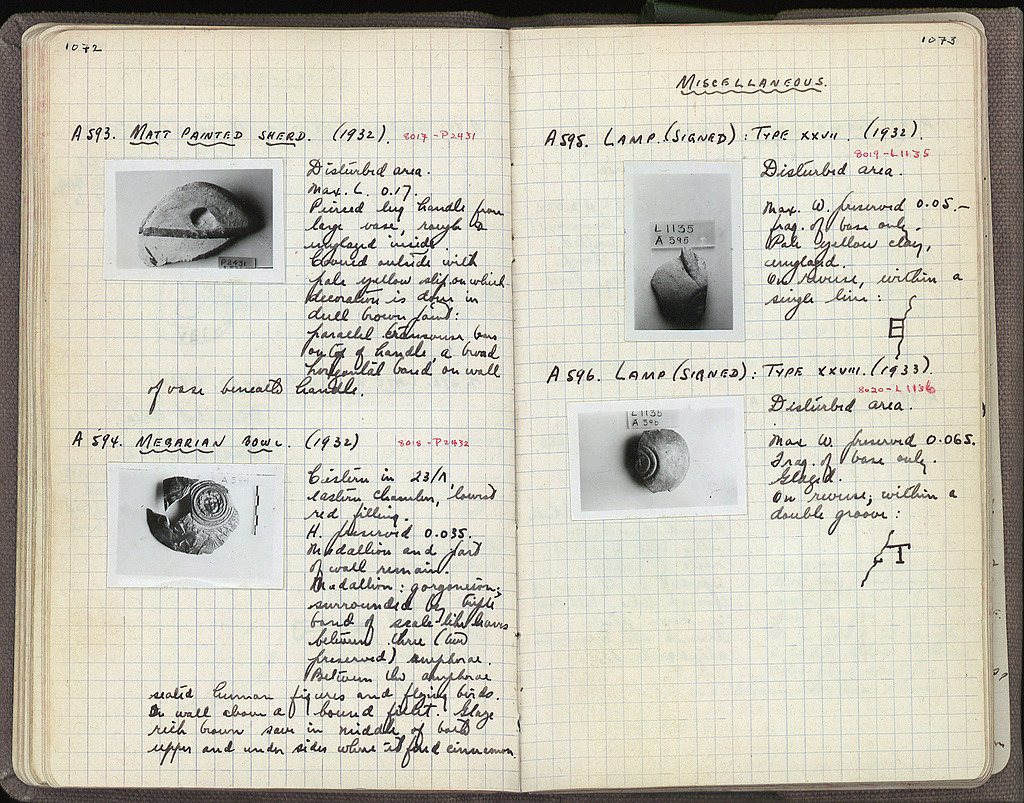 1072
A 593. MATT PAINTED SHERD. (1932). 8017-P2431
Disturbed area.
Max. L. 0.17.
Pierced lug handle from
large vase, rough &
unglazed inside.
Covered outside with
pale yellow slip, on which
decoration is done in
dull brown paint:
parallel transverse bars
on top of handle, a broad
horizontal band on wall
of vase beneath handle.
P2431
A 594. MEGARIAN BOWL. (1932) 8018-P2432
Cistern in 23/Λ,
eastern chamber, lowest
red filling.
H. preserved 0.035.
Medallion and part
of wall remain.
Medallion: gorgoneion;
surrounded by triple
band of scale-like leaves
between three (two
preserved) amphorae.
Between the amphorae
seated human figures and flying birds.
On wall above a bound fillet. Glaze
rich brown save in middle of both
upper and under sides where it fired cinnamon.
A 594
1073
MISCELLANEOUS.
A 595. LAMP. (SIGNED): TYPE XXVII. (1932).
8019-L1135
Disturbed area.
Max. W. preserved 0.05.—
frag. of base only.
Pale yellow clay,
unglazed.
On reverse, within a
single line:
E
L1135
A 595
A 596. LAMP (SIGNED): TYPE XXVIII. (1933).
8020-L1136
Disturbed area.
Max W. preserved 0.065.
Frag. of base only.
Glazed.
On reverse, within a
double groove:
T
L1136
A 596